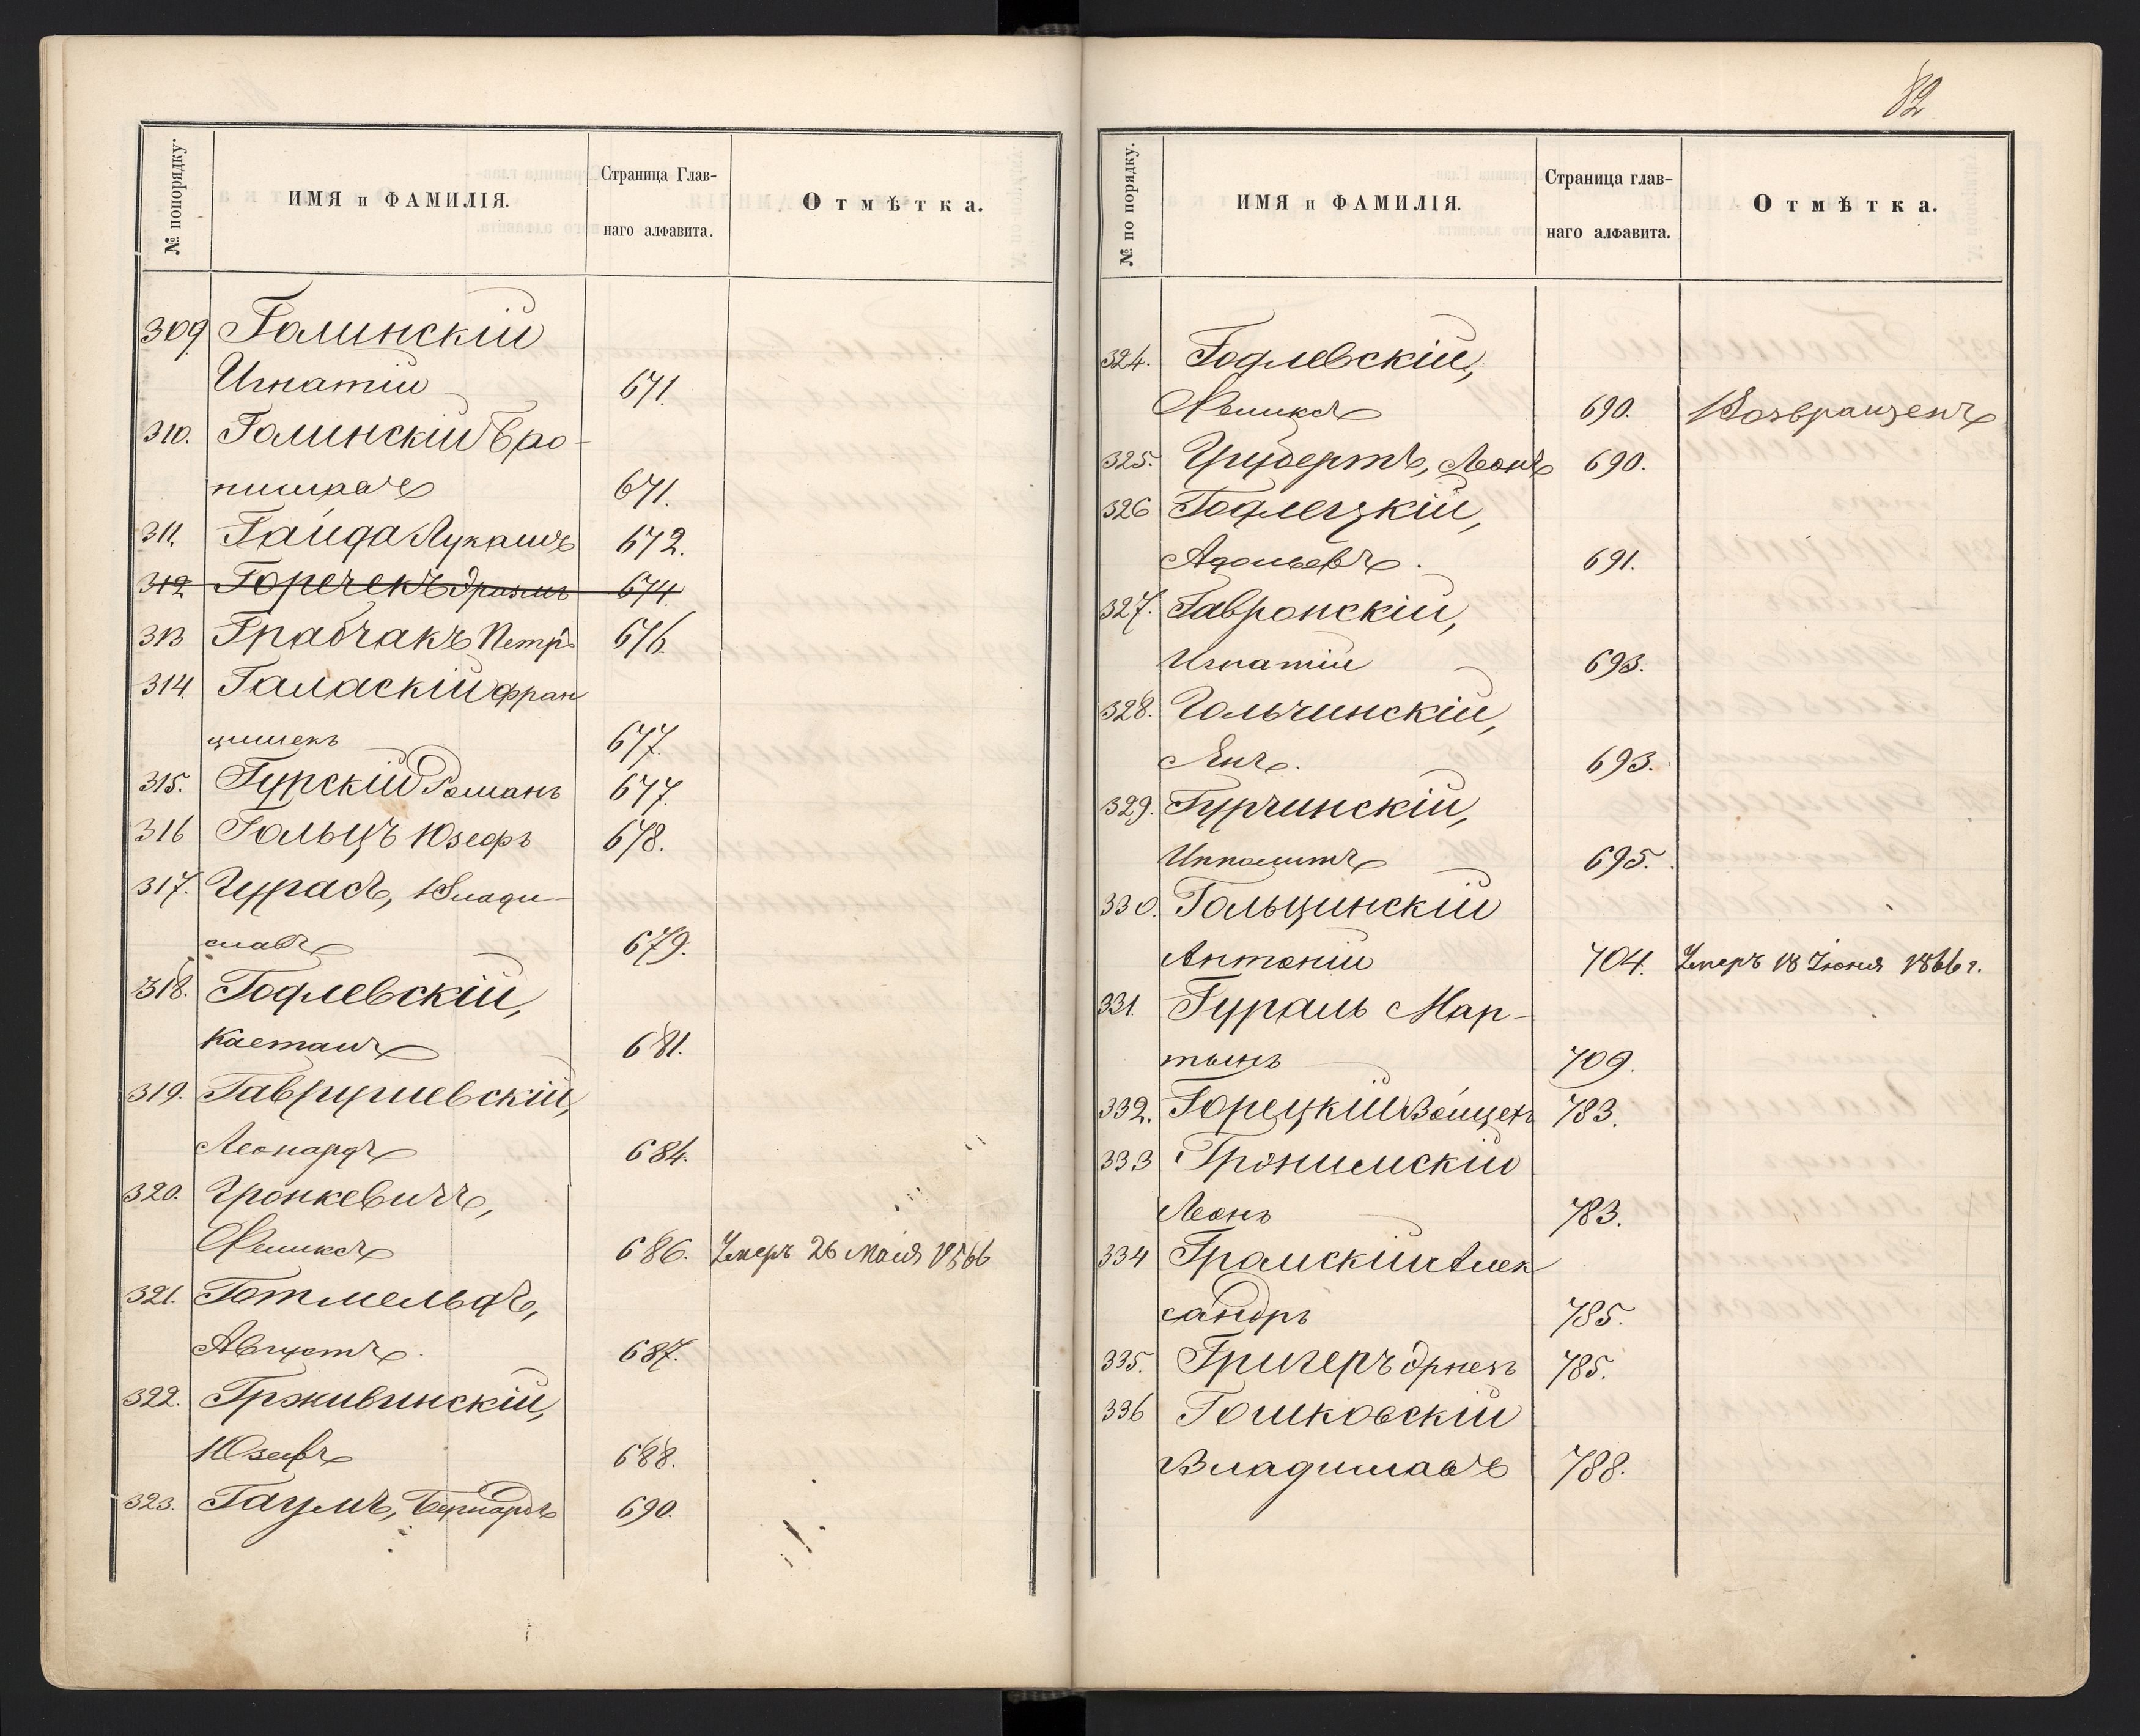 № попорядку.
ИМЯ и ФАМИЛІЯ.
Страница Глав-
наго алфавита.
Отмѣтка.
309 Голинскій
Игнатій 671.
310. Голинскій Бро-
ниславъ 671.
311. Гайда Лукашъ 672.
312 Горечекъ 674
313 Грабчакъ Петръ 676.
314. Галаскій Фран
цишекъ 677.
315. Гурскій Романъ 677.
316 Гольцъ Юзефъ 678.
317. Гурасъ, Влади-
славъ 679.
318. Годлевскій,
Каетанъ 681.
319. Гаврушевскій,
Леонардъ 684.
320. Гронкевичъ,
Феликсъ 686. Умеръ 26 Маія 1866
321. Готмельдъ,
Августъ. 687.
322. Грживинскій,
Юзефъ 688.
323. Гаумъ, Бернардъ 690.
82
№ по порядку.
ИМЯ и ФАМИЛІЯ.
Страница глав-
наго алфавита.
Отмѣтка.
324. Годлевскій,
Феликсъ 690. Возвращенъ
325. Леонъ 690.
326 Годлецкій,
Адольфъ. 691.
327. Гавронскій,
Игнатій 693.
328. Гольчинскій,
Янъ. 693.
329. Гурчинскій,
Ипполитъ 695.
330. Гольцинскій
Антоній 704. Умеръ 18 Іюня 1866 г.
331. Гураль Мар-
тынъ 709.
332. Горецкій Войцехъ 783.
333 Леонъ 783.
334 Грамскій Алек
сандръ 785.
335. Григеръ Эрнестъ 785.
336 Гошковскій
Владиславъ 788.